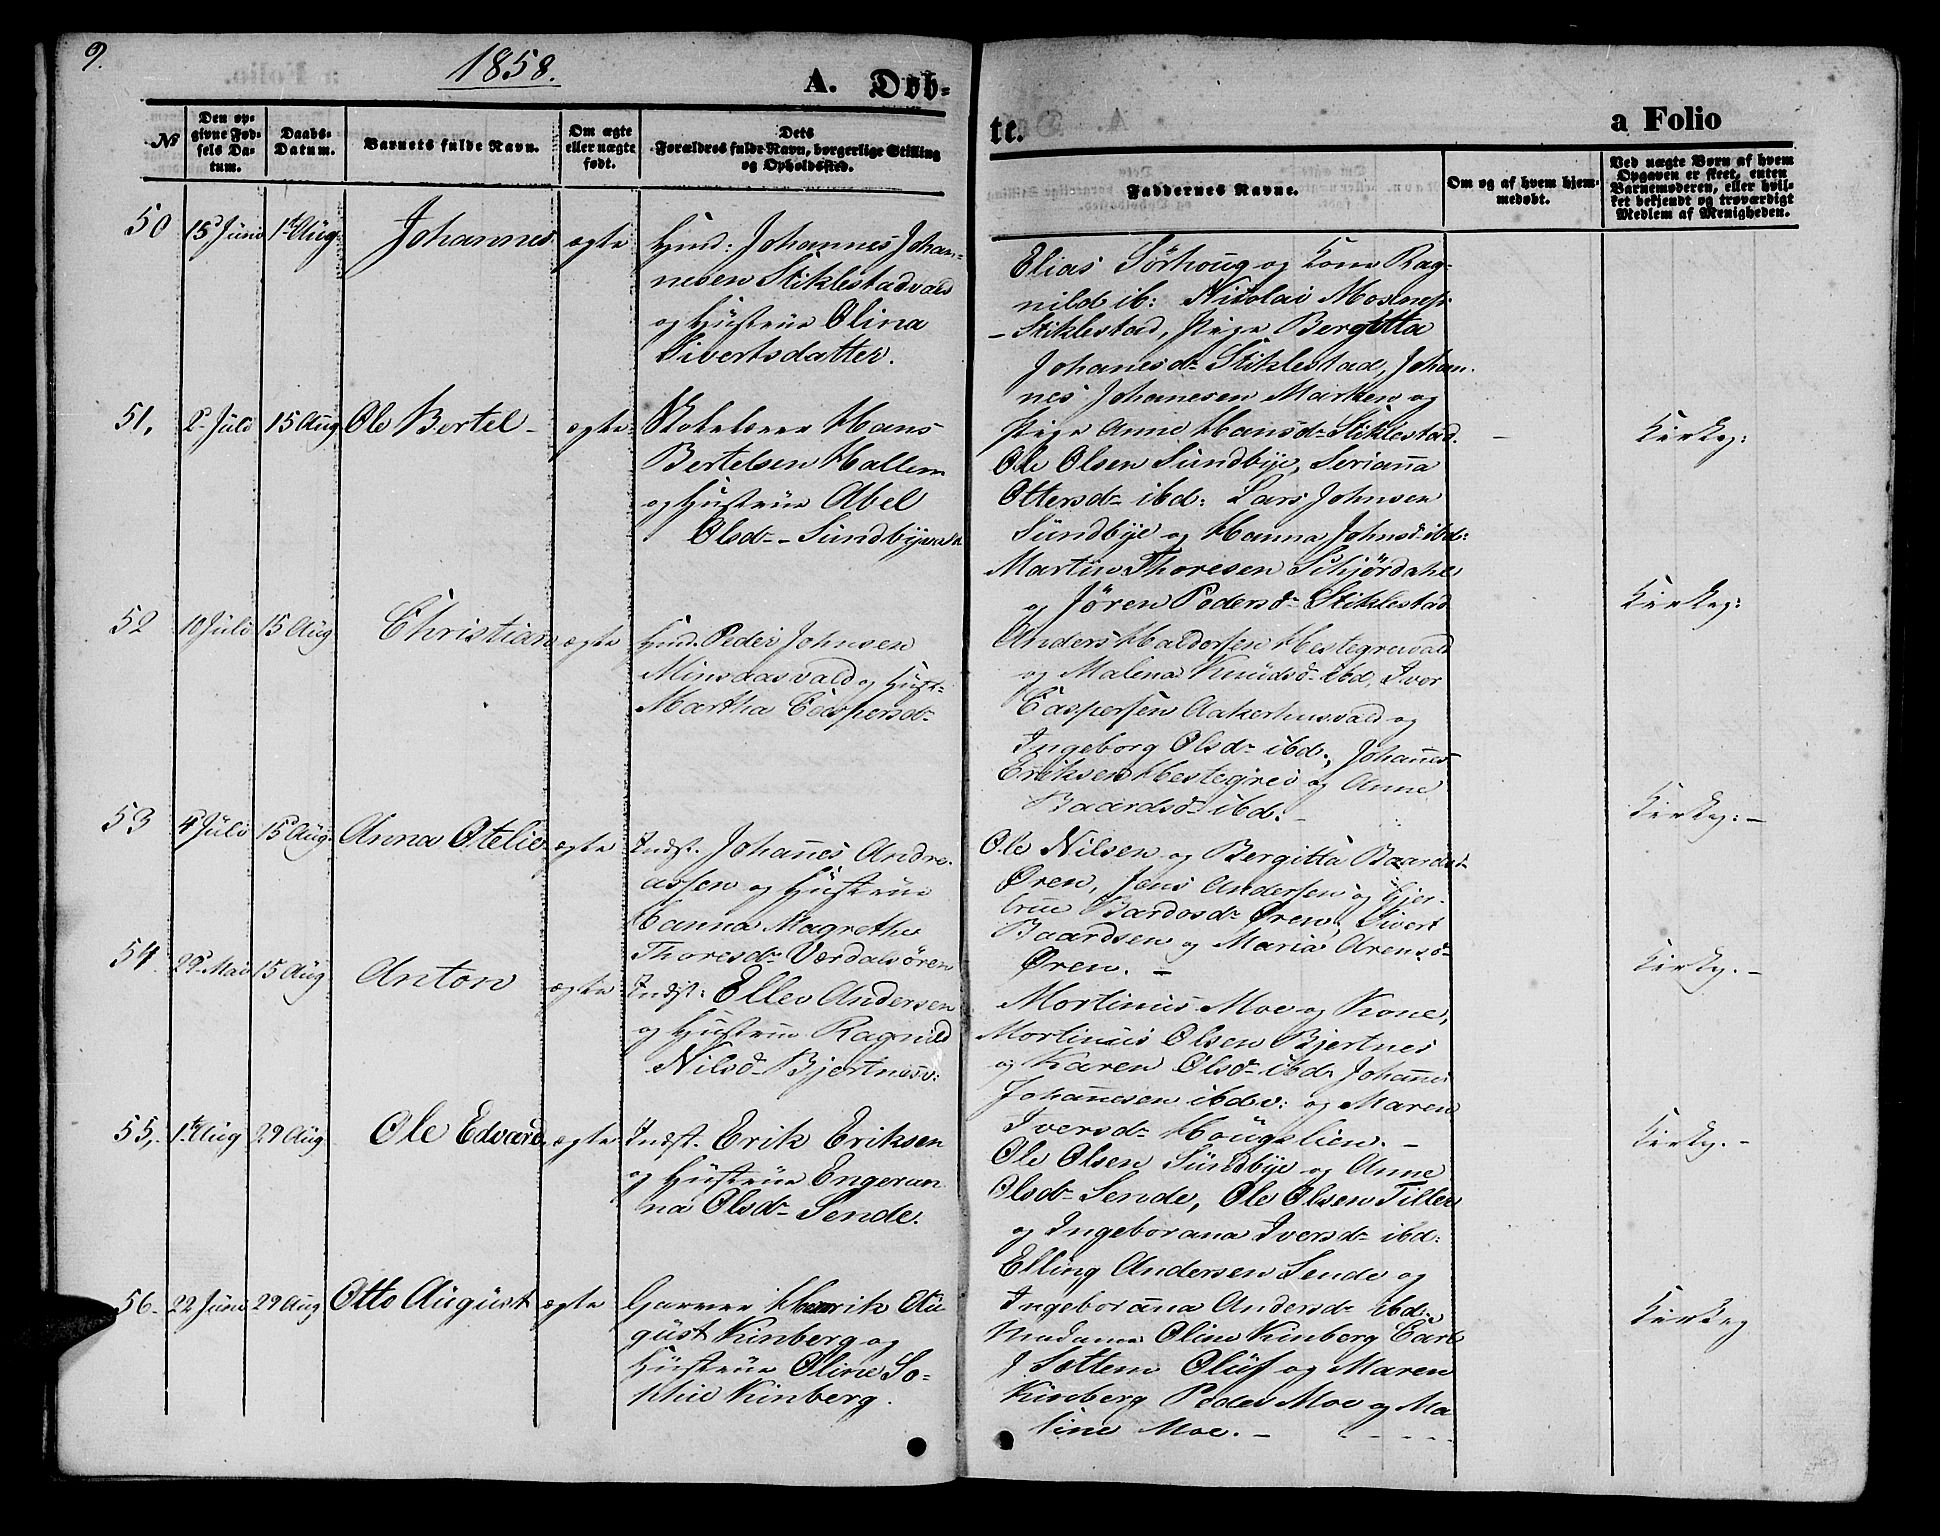 9.
1858.
A. Døb-
№
Den op-
givne Fød-
sels Da-
tum.
Daabs-
Datum.
Barnets fulde Navn.
Om ægte
eller uægte
født.
Dets
Forældres fulde Navn, borgerlige Stilling
og Opholdssted.
50
15 Juni
1ste Aug
Johannes
ægte
Huusmd: Johannes Johan-
nesen Stiklestadvald
og Hustrue Olina
Sivertsdatter.
51,
2 Juli
15 Aug
Ole Bertel -
ægte
Skolelærer Hans
Bertelsen Hallem
og Hustrue Abel
Olsdr - Sundbye
52
10 Juli
15 Aug
Christian
ægte
Peder Johnsen
Minsaasvald og Hust-
Martha Caspersdr
53
4 Juli
15 Aug.
Anna Otelie
ægte
Indst. Johannes Andre-
assen og Hustrue
Hanna Magrethe
Thoresdr Værdalsøren
54
29 Mai
15 Aug
Anton
ægte
Indst: Ellev Andersen
og Hustrue Ragnild
Nilsdr Bjertnesv:
55,
1ste Aug
29 Aug
Ole Edvard
ægte
Indst. Erik Eriksen
og Hustrue Engeran
na Olsdr Sende.
56-
22 Juni
29 Aug
Otto August
ægte
Garver Henrik Au
gust Kinberg og
Hustrue Oline So-
phie Kinberg.
te.
a Folio
Faddernes Navne.
Om og af hvem hjem-
medøbt.
Ved uægte Børn af hvem
Opgaven er skeet, enten
Barnemoderen, eller hvil-
ket bekjendt og troværdigt
Medlem af Menigheden.
Elias Sørhoug og Kone Rag-
nild ib: Nicolai Mosnes
- Stiklestad, Pige Bergitta
Johanesdr Stiklestad, Johan
nes Johanesen Marken og
Pige Anne Hansdr Stiklestad.
Ole Olsen Sundbye, Serianna
Ottersdr ibd: Lars Johnsen
Sundbye og Hanna Johnsd ibd:
Martin Thoresen Schjørdahl
og Jøren Pedersdr Stiklestad
Anders Haldorsen Hestegreivald
og Malena Knudsd ibd, Iver
Caspersen Aakerhusvald og
Ingeborg Olsdr ibd, Johannes
Eriksen Hestegrei og Anne
Baardsd ibd. -
Ole Nilsen og Bergitta Baardsd
Øren, Jens Andersen og Gjer-
true Baardsdr Øren, Sivert
Baardsen og Maria Arensd
Øren. -
Mortinus Moe og Kone,
Mortinus Olsen Bjertnes
og Karen Olsdr ibd, Johannes
Johannesen ibdv: og Maren
Iversdr Hougslien. -
Ole Olsen Sundbye og Anne
Olsdr Sende, Ole Olsen Tiller
og Ingeborana Iversdr ibd:
Elling Andersen Sende og
Ingeboranna Andersdr ibd.
Madame Oline Kinberg Carl
J Sottem Oluf og Maren
Kinberg Peder Moe og Ma
line Moe. -
Kirkeg:
Kirkeg:
Kirkeg: -
Kirkg. -
Kirkg. -
Kirkeg